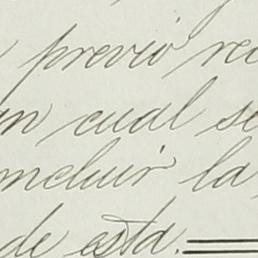 previo rec
un cual se
ncluir la
de esta.